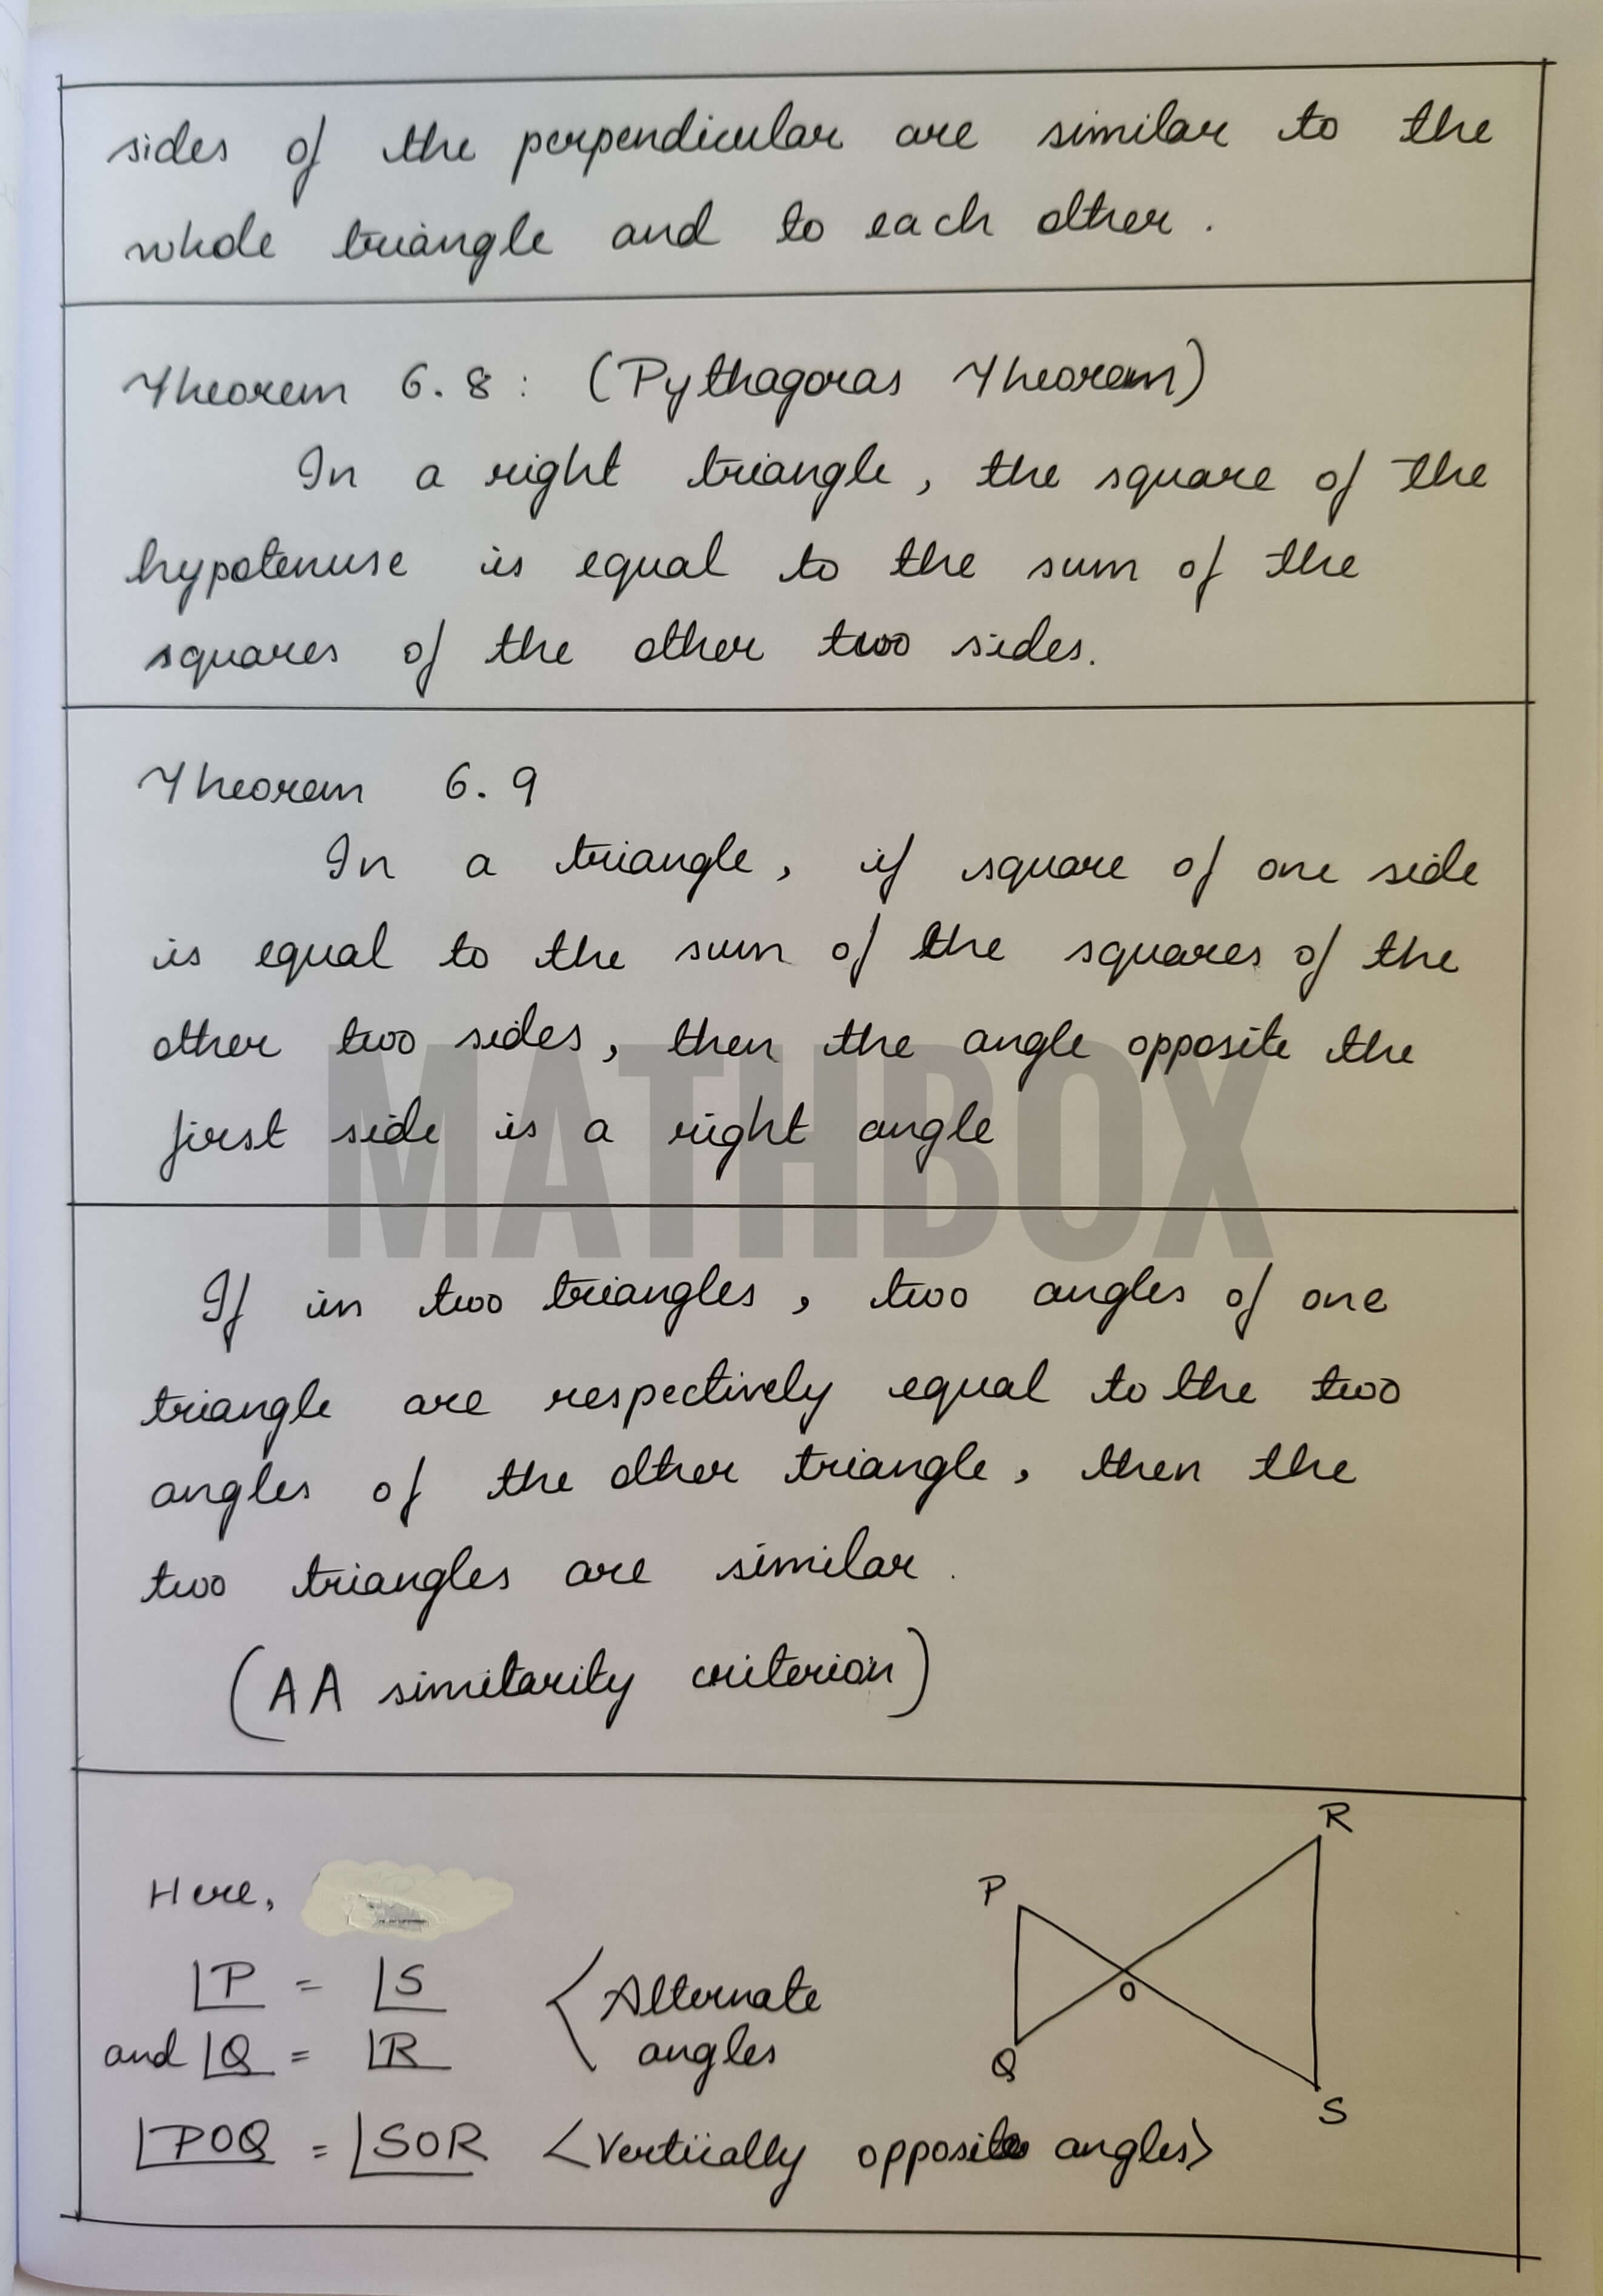 sides of the perpendicular are similar to the
whole triangle and to each other.
Theorem 6.8: (Pythagoras Theorem)
In a right triangle, the square of the
hypotenuse is equal to the sum of the
squares of the other two sides.
Theorem 6.9
In a triangle, if square of one side
is equal to the sum of the squares of the
other two sides, then the angle opposite the
first side is a right angle
MATHBOX
If in two triangles, two angles of one
triangle are respectively equal to the two
angles of the other triangle, then the
two triangles are similar.
(AA similarity criterion)
R
P
Here,
∠P = ∠S <Alternate
O
and ∠Q = ∠R angles
Q
S
∠POQ = ∠SOR <Vertically opposite angles>